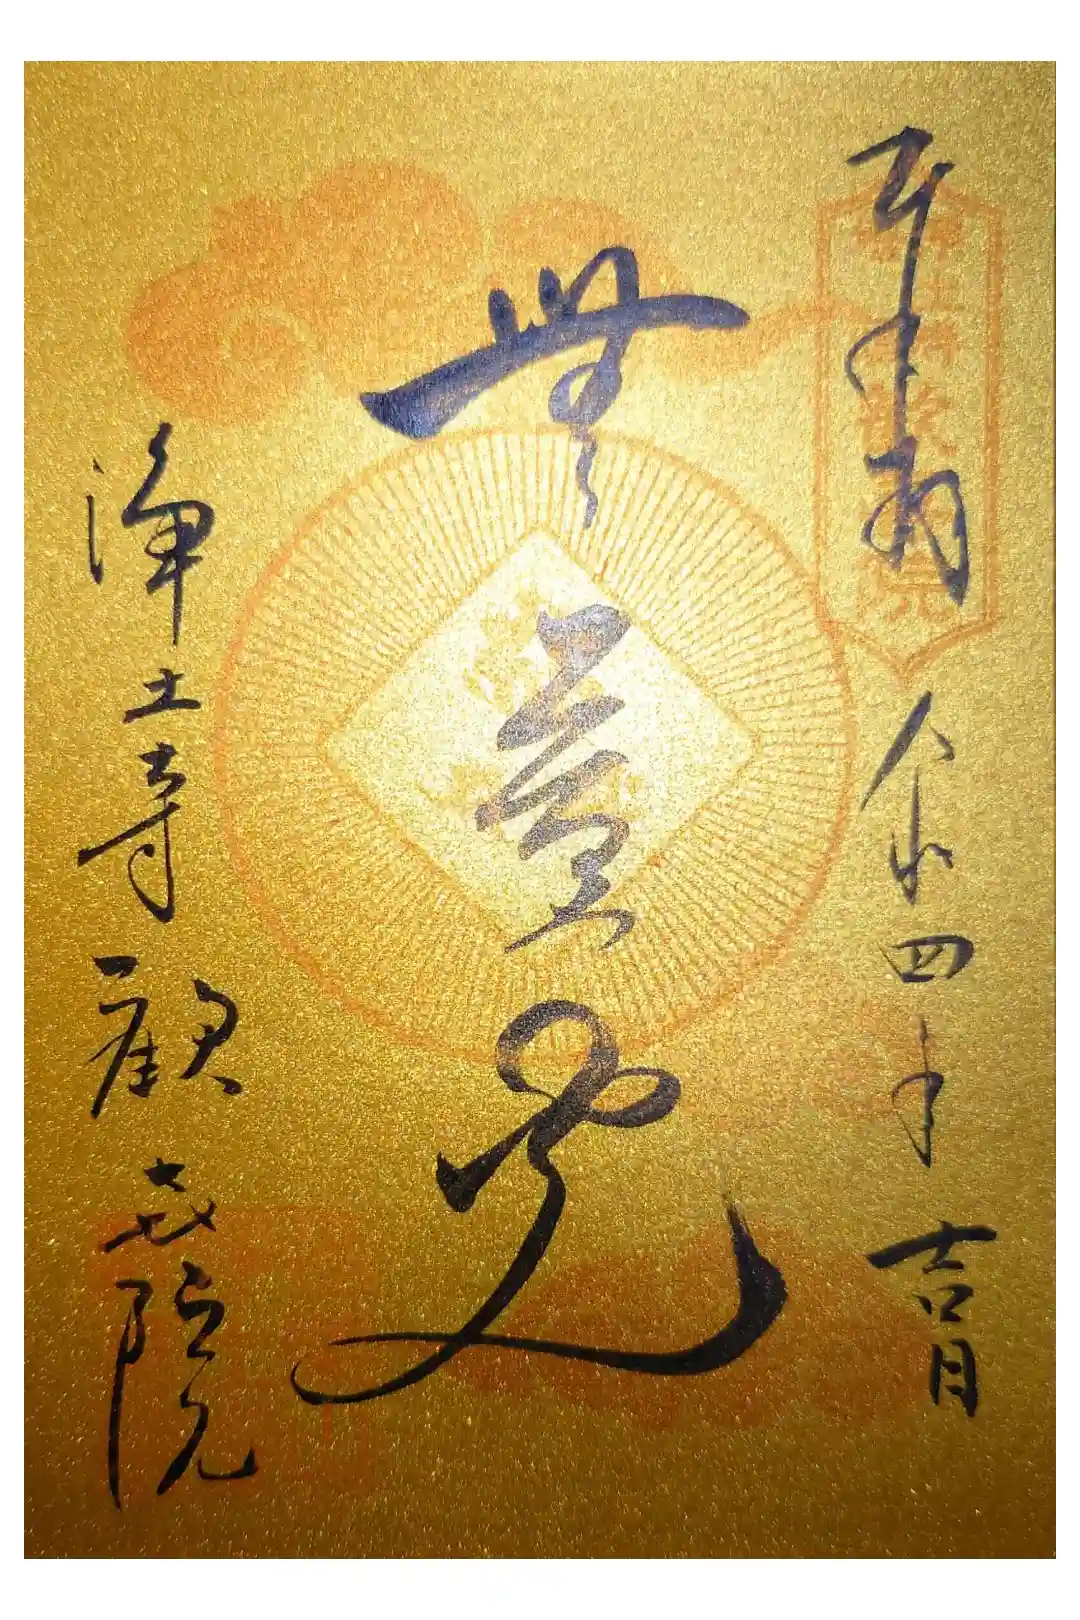 奉拝 令和四年 吉日
無量光
浄土寺歓喜院